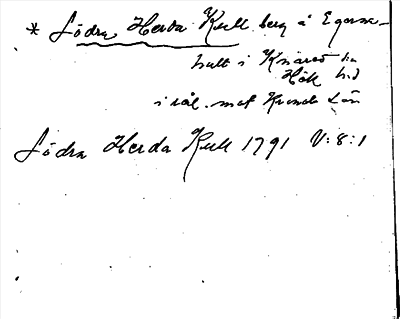 * Södra Herda Kull berg å Egerna-
hult i Knäred sn
Höks hd
i rål. mot Kronob Län
Södra Herda Kull 1791 V:8:1